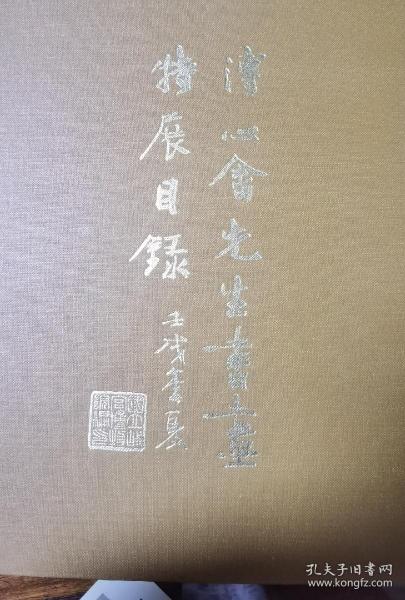 溥心畬先生書畫
特展目錄
壬戌
孔夫子旧书网
www.kongfz.com